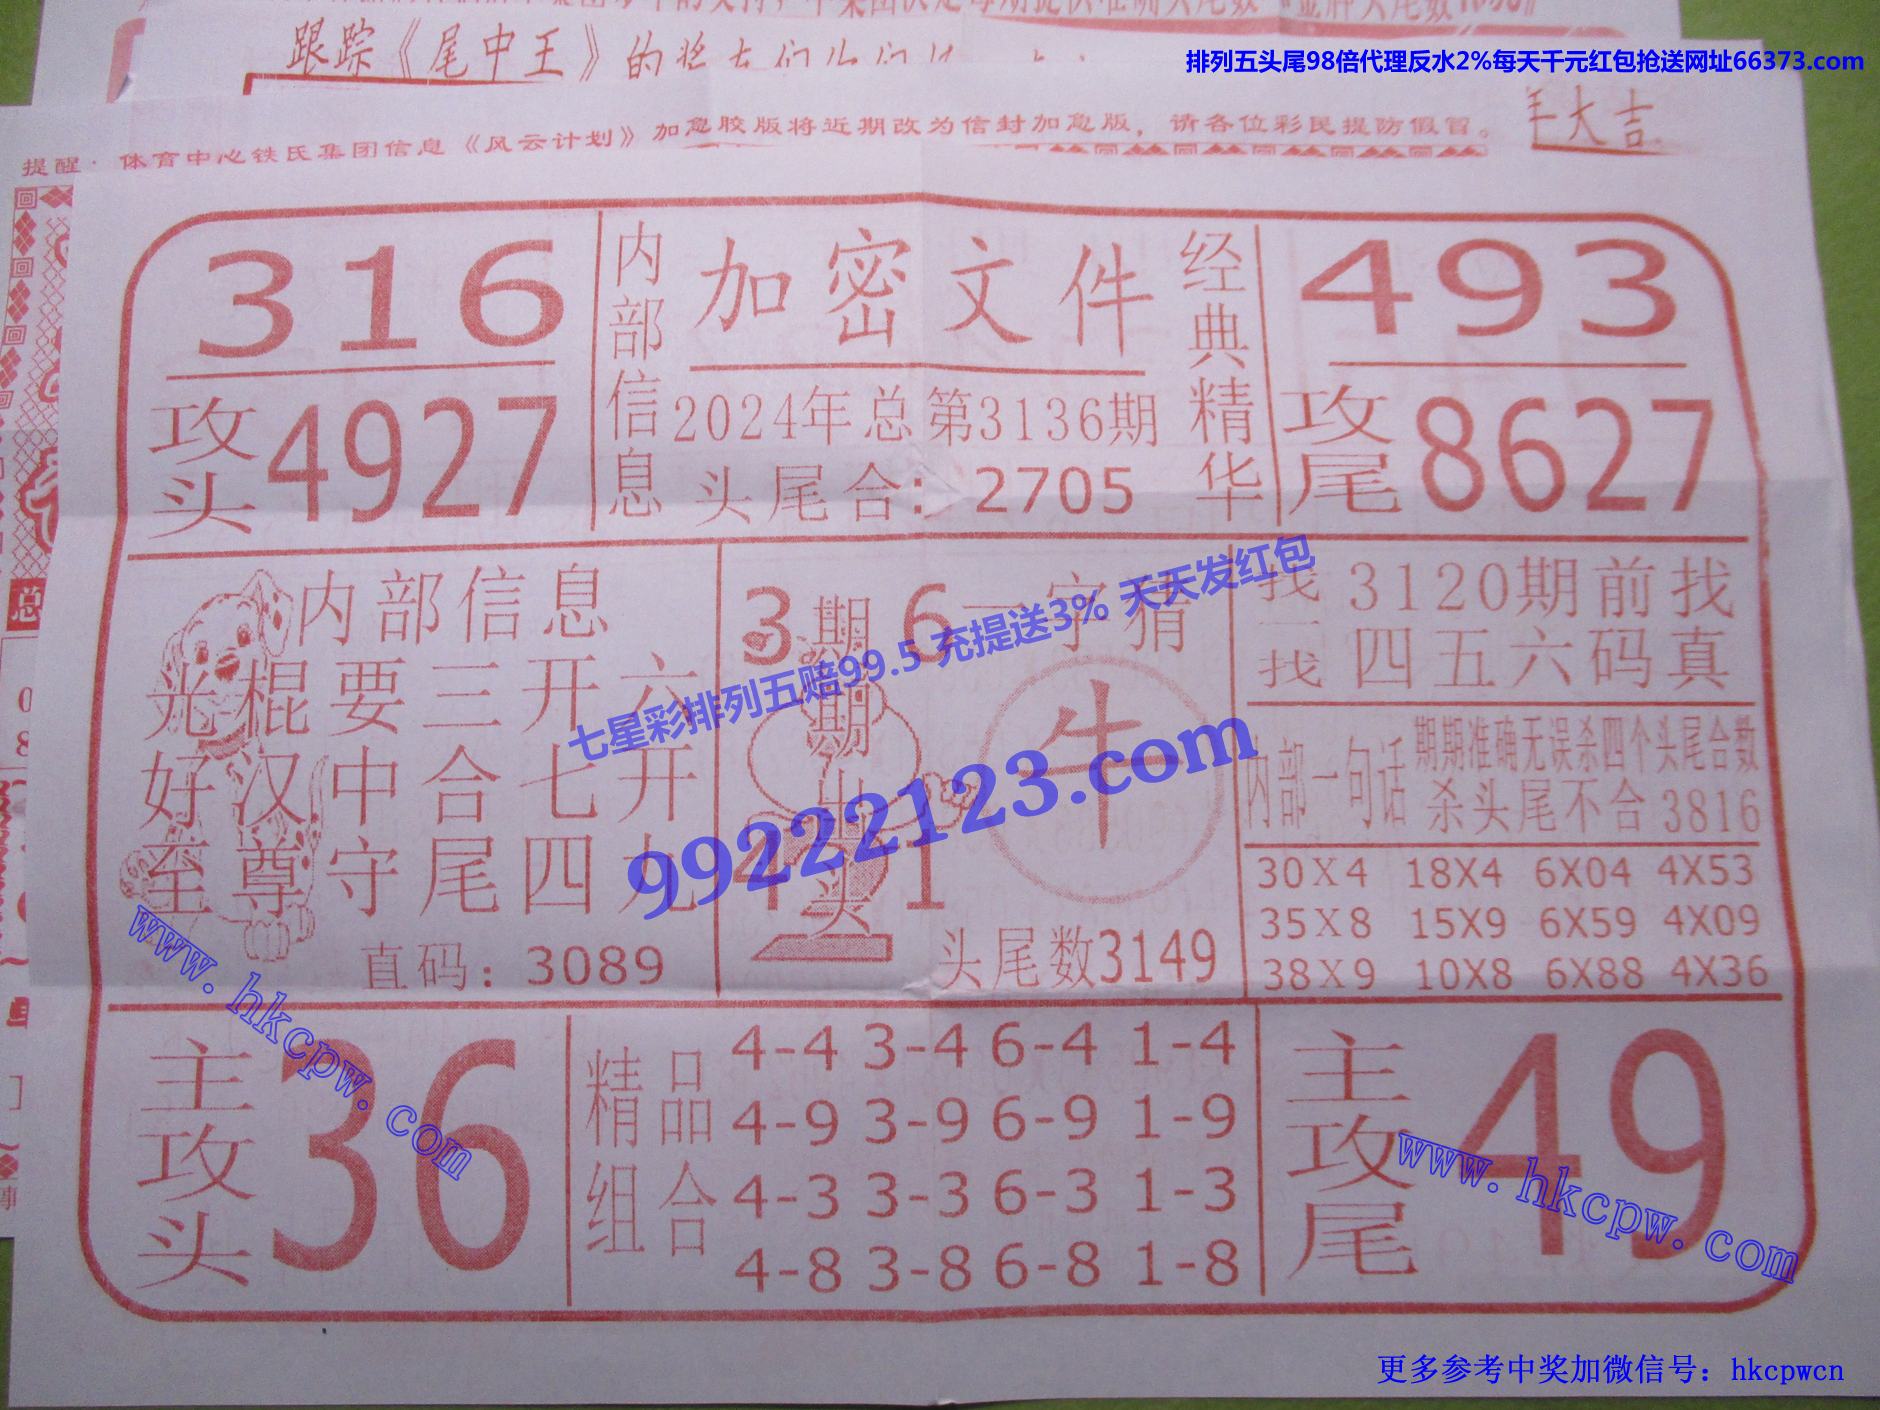 跟踪《尾中王》的
排列五头尾98倍代理反水2%每天千元红包抢送网址66373.com
提醒·体育中心铁氏集团信息《风云计划》加急胶版将近期改为信封加急版，请各位彩民提防假冒。
大吉
316
内部信息
加密文件
经典精华
493
攻头
4927
2024年总第3136期
头尾合：2705
攻尾
8627
内部信息
光棍要三开六
好汉中合七开
至尊守尾四九
直码：3089
3 6
期期出头
一字猜
牛
头尾数3149
找一找
3120期前找
四五六码真
内部一句话
期期准确无误杀四个头尾合数
杀头尾不合3816
30X4 18X4 6X04 4X53
35X8 15X9 6X59 4X09
38X9 10X8 6X88 4X36
七星彩排列五赔99.5 充提送3% 天天发红包
99222123.com
www.hkcpw.com
主攻头
36
精品组合
4-4 3-4 6-4 1-4
4-9 3-9 6-9 1-9
4-3 3-3 6-3 1-3
4-8 3-8 6-8 1-8
主攻尾
49
www.hkcpw.com
更多参考中奖加微信号：hkcpwcn